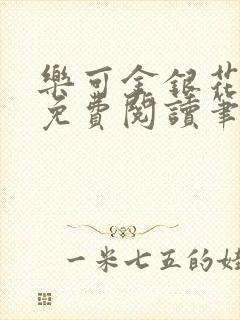 樂可金銀花
免費閱讀筆
一米七五的娃